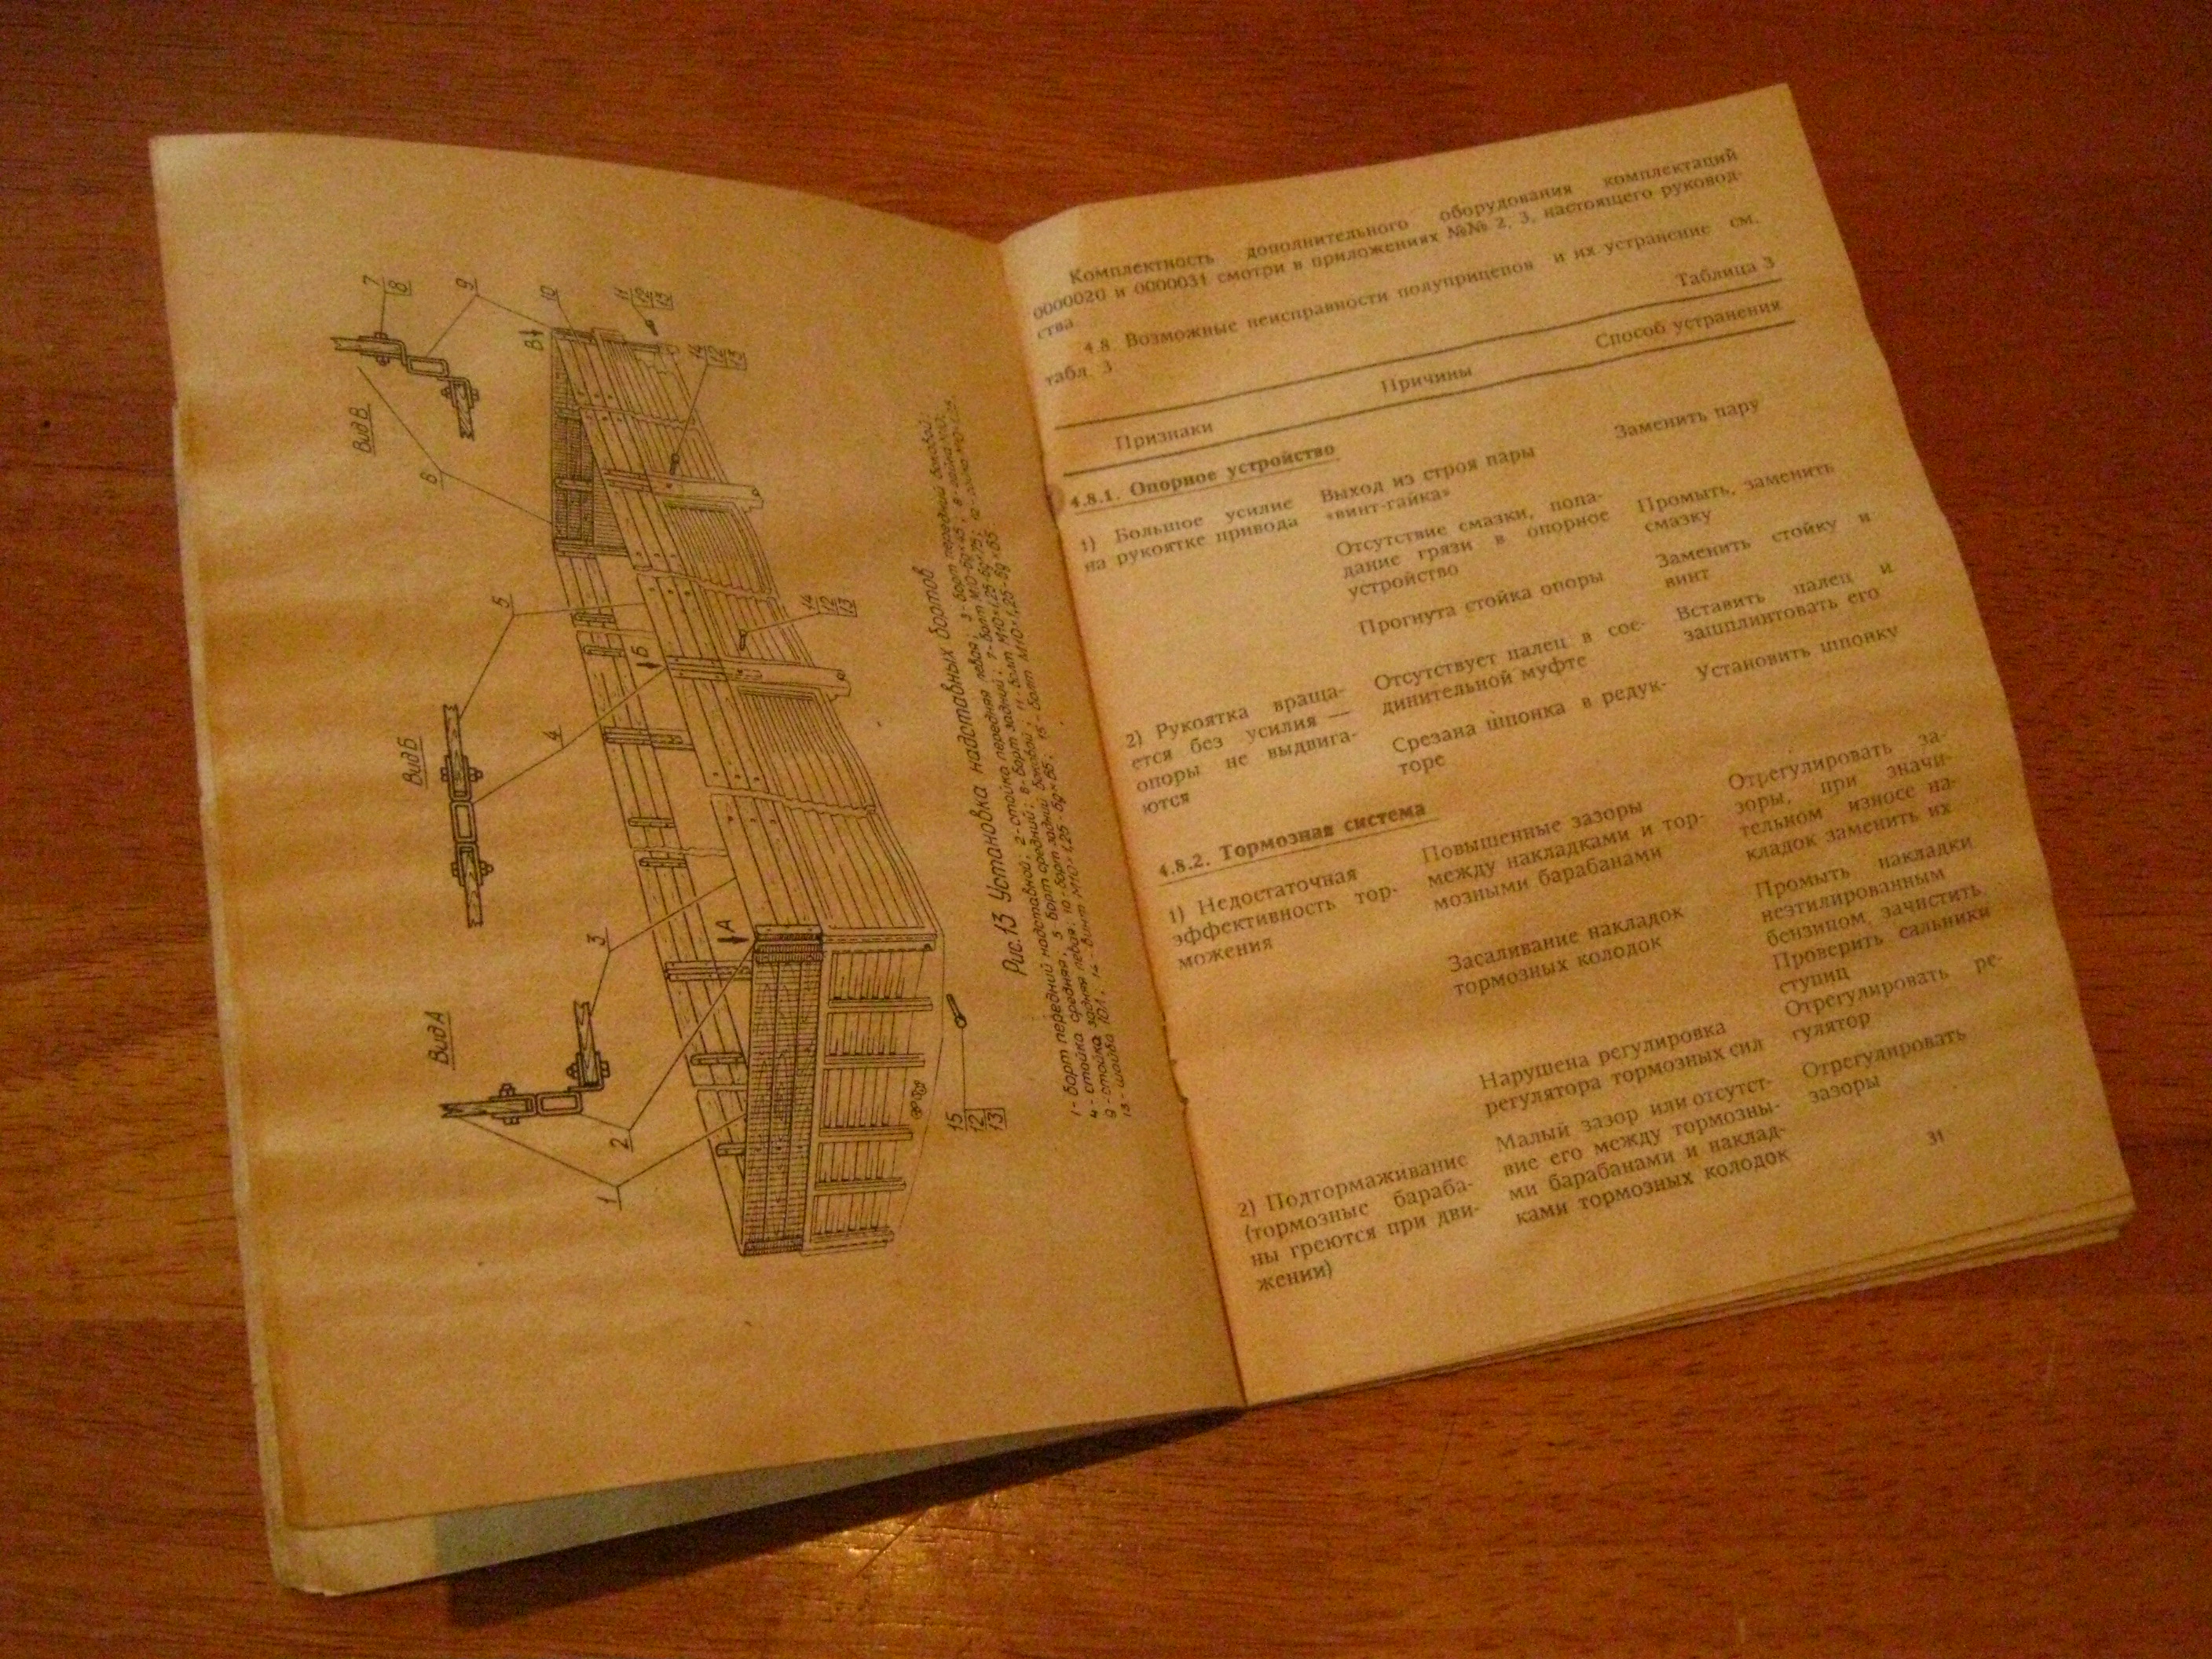 Вид А
Вид Б
Вид В
1
2
3
4
5
6
7
8
9
10
11
12
13
14
12
13
14
12
13
15
12
13
А
Б
В
Рис. 13 Установка надставных бортов
1 - борт передний надставной; 2 - стойка передняя левая; 3 - борт передний боковой;
4 - стойка средняя; 5 борт средний; 6 - борт задний; 7 - болт
9 - стойка задняя левая; 10 - борт задний боковой; 11 - болт
13 - шайба 10.1; 14 - винт М10×1,25-6g×65; 15 - болт М10×1,25-6g×65
Комплектность дополнительного оборудования комплектаций
0000020 и 0000031 смотри в приложениях №№ 2, 3, настоящего руковод-
ства
4.8. Возможные неисправности полуприцепов и их устранение см.
табл. 3
Таблица 3
Признаки Причины Способ устранения
4.8.1. Опорное устройство
1) Большое усилие
на рукоятке привода
Выход из строя пары
«винт-гайка»
Заменить пару
Отсутствие смазки, попа-
дание грязи в опорное
устройство
Промыть, заменить
смазку
Прогнута стойка опоры
Заменить стойку и
винт
2) Рукоятка враща-
ется без усилия —
опоры не выдвига-
ются
Отсутствует палец в сое-
динительной муфте
Вставить палец и
зашплинтовать его
Срезана шпонка в редук-
торе
Установить шпонку
4.8.2. Тормозная система
1) Недостаточная
эффективность тор-
можения
Повышенные зазоры
между накладками и тор-
мозными барабанами
Отрегулировать за-
зоры, при значи-
тельном износе на-
кладок заменить их
Засаливание накладок
тормозных колодок
Промыть накладки
неэтилированным
бензипом, зачистить.
Проверить сальники
ступиц
Нарушена регулировка
регулятора тормозных сил
Отрегулировать ре-
гулятор
2) Подтормаживание
(тормозные бараба-
ны греются при дви-
жении)
Малый зазор или отсутст-
вие его между тормозны-
ми барабанами и наклад-
ками тормозных колодок
Отрегулировать
зазоры
31